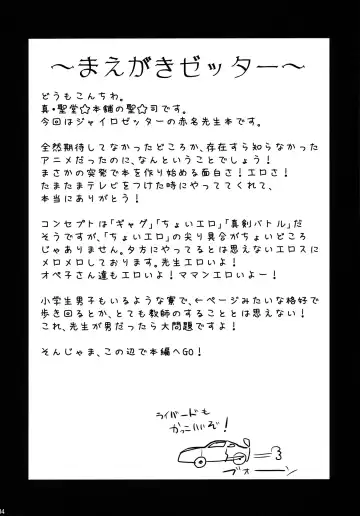 ～まえがきゼッター～
どうもこんちわ。
真・聖堂☆本舗の聖☆司です。
今回はジャイロゼッターの赤名先生本です。
全然期待してなかったどころか、存在すら知らなかった
アニメだったのに、なんということでしょう！
まさかの突発で本を作り始める面白さ！エロさ！
たまたまテレビをつけた時にやっててくれて、
本当にありがとう！
コンセプトは「ギャグ」「ちょいエロ」「真剣バトル」だ
そうですが、「ちょいエロ」の尖り具合がちょいどころ
じゃありません。夕方にやってるとは思えないエロスに
メロメロしております。先生エロいよ！
オペ子さん達もエロいよ！ママンエロいよー！
小学生男子もいるような寮で、←ページみたいな格好で
歩き回るとか、とても教師のすることとは思えない！
これ、先生が男だったら大問題ですよ！
そんじゃま、この辺で本編へGO！
ライバードも
かっこいいぞ！
ブォーン
04